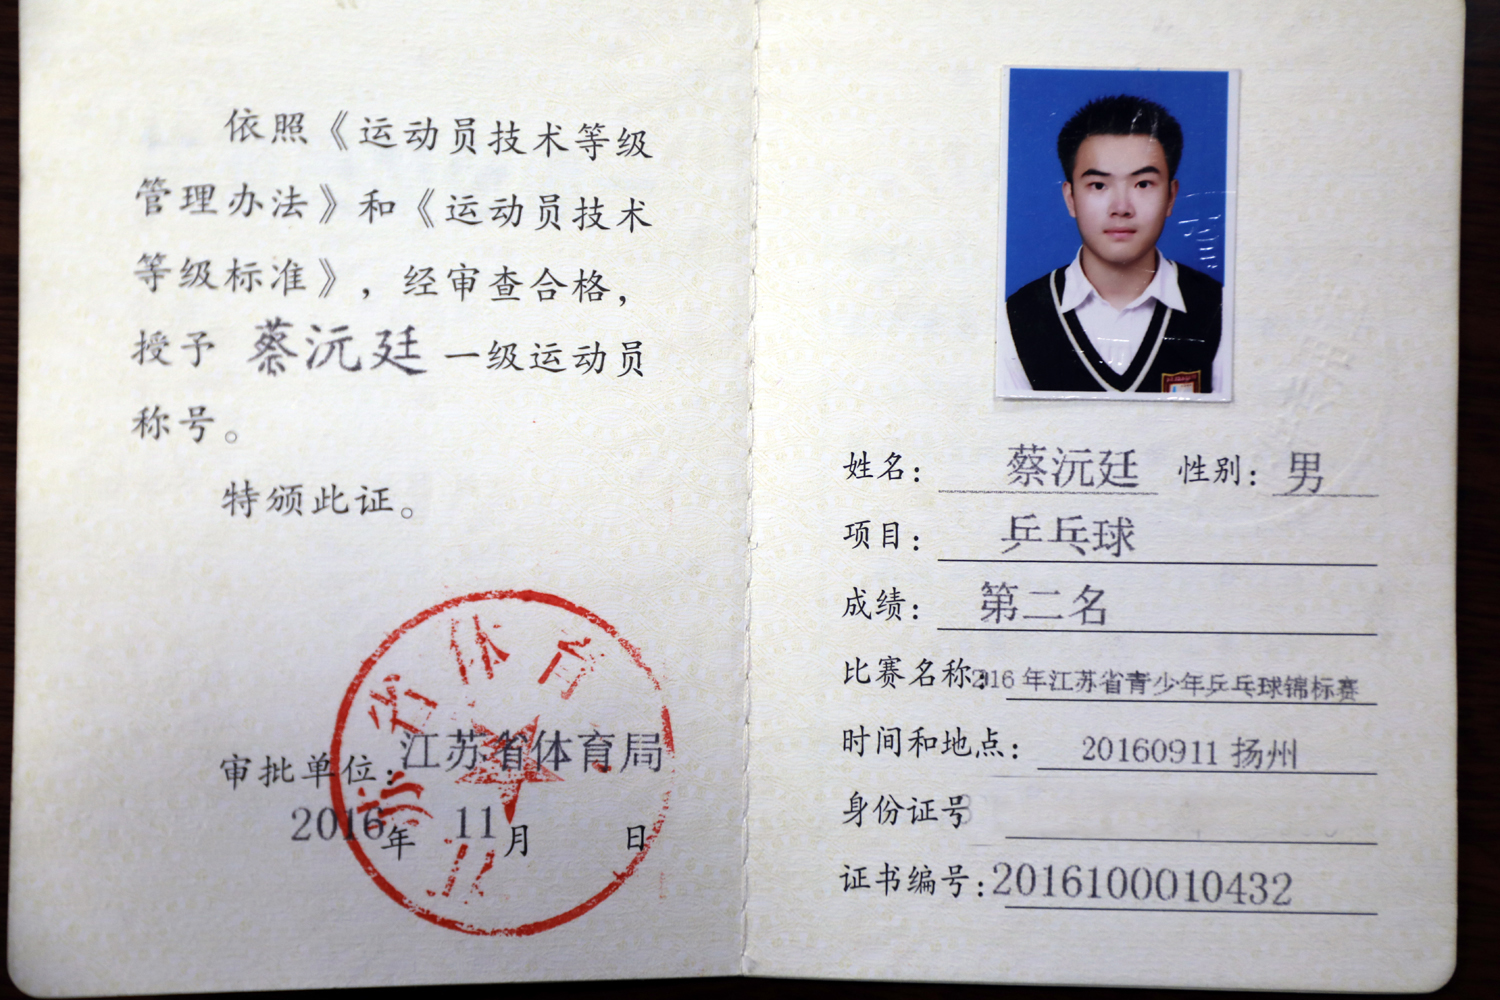 依照《运动员技术等级
管理办法》和《运动员技术
等级标准》，经审查合格，
授予 蔡沅廷 一级运动员
称号。
特颁此证。
审批单位：江苏省体育局
2016年 11月 日
姓名：蔡沅廷 性别：男
项目：乒乓球
成绩：第二名
比赛名称：2016年江苏省青少年乒乓球锦标赛
时间和地点：20160911 扬州
身份证号
证书编号：2016100010432